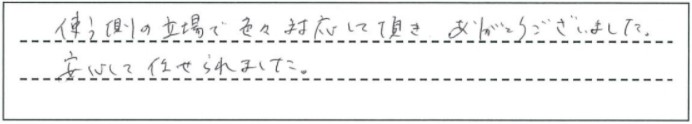 使う側の立場で色々対応して頂き ありがとうございました。
安心して任せられました。